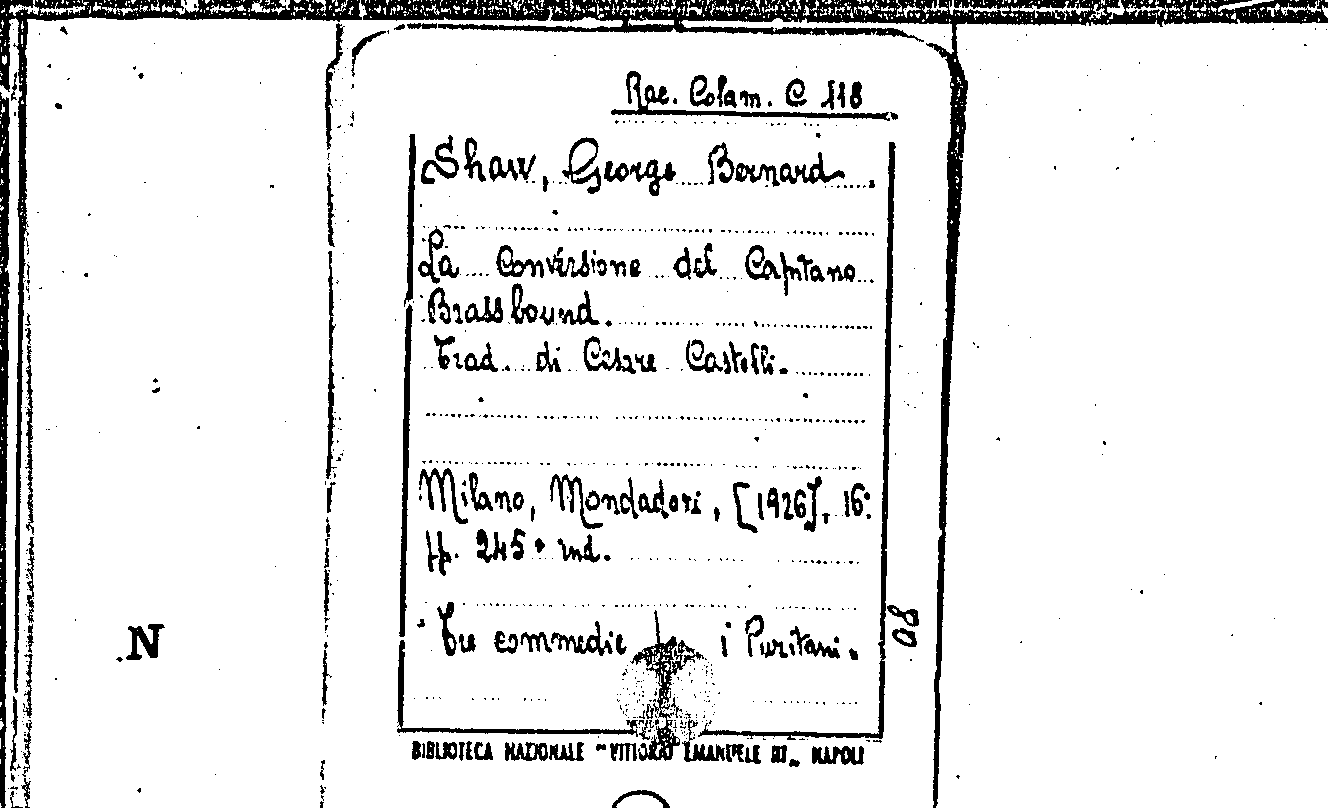 Rac. Colam. C 118
Shaw, George Bernard.
La Conversione del Capitano
Brassbound.
Trad. di Cesare Castelli.
Milano, Mondadori, [1926], 16:
pp. 245 + ind.
Tre commedie i Puritani.
98
N
BIBLIOTECA NAZIONALE "VITTORIO EMANUELE III„ NAPOLI